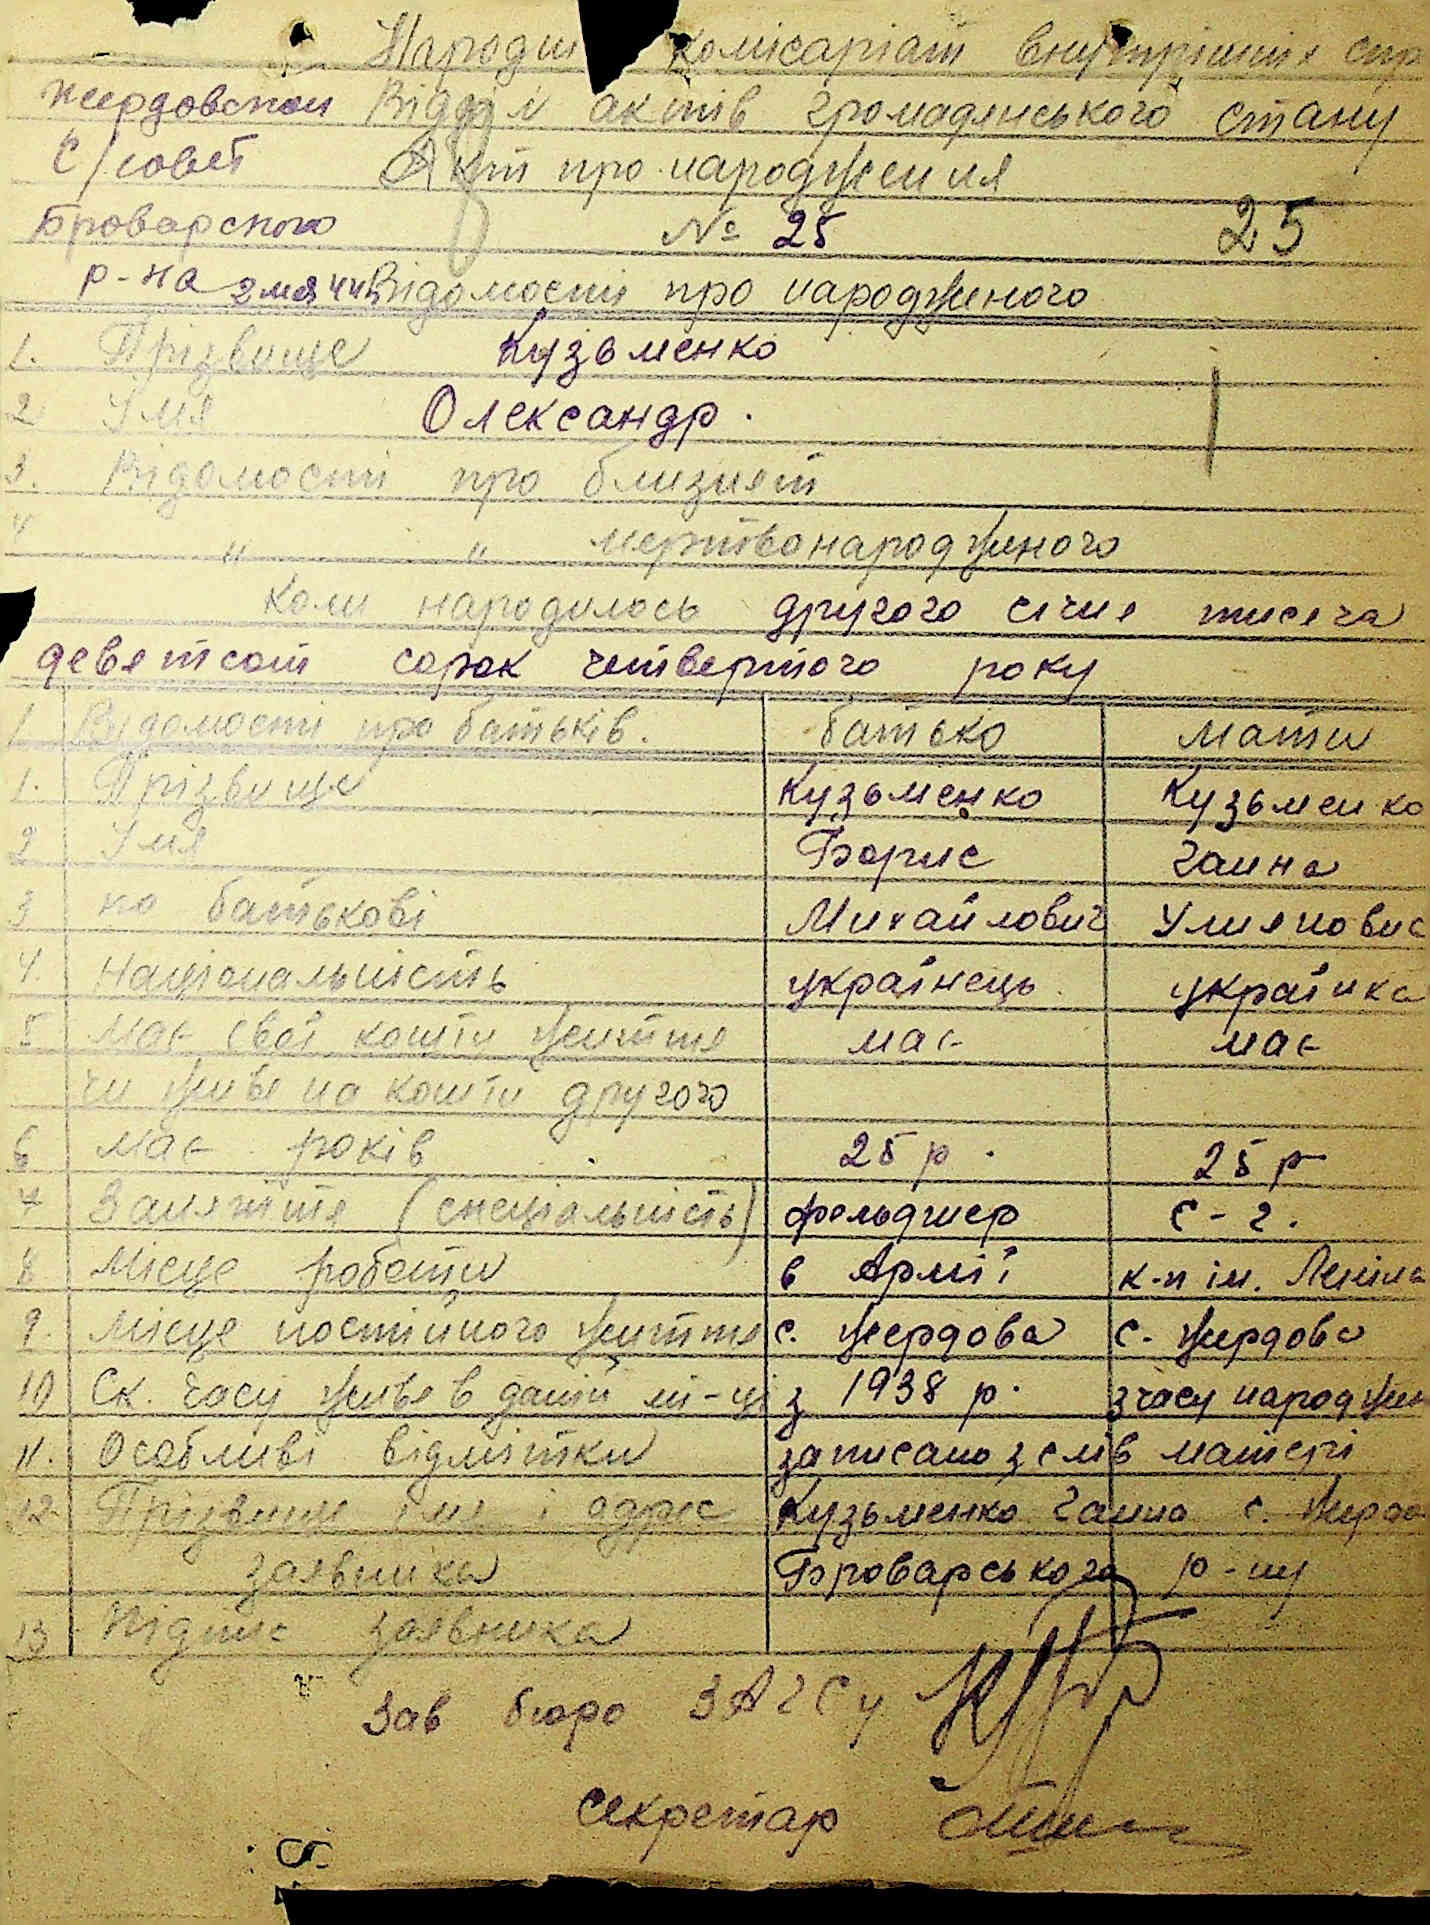 Народни комісаріат внутрішніх спр
Жердовской Відділ актів громадянського стану
С/совет Акт про народження
Броварского № 25 25
р-на Відомості про народженого
1. Прізвище Кузьменко
2 Імя Олександр.
3. Відомості про близнят
4 " " мертвонародженого
Коли народилось другого січня тисяча
девятсот сорок четвертого року
1 Відомості про батьків. батько мати
1. Прізвище Кузьменко Кузьменко
2 Імя Борис Ганна
3 по батькові Михайлович Улияновна
4. Національність українець українка
5 Має свої кошти життя має має
чи живе на кошти другого
6 Має років 25 р. 25 р
7 Заняття (спеціальність) фельдшер с-г.
8 Місце роботи в Армії к-п ім. Леніна
9. Місце постійного життя с. Жердова с. Жердова
10 Ск. часу живе в даній мі-ці з 1938 р. з часу народжен
11. Особливі відмітки записано з слів матері
12. Прізвище імя і адрес Кузьменко Ганна с. Жердов
заявника Броварського р-ну
13 Підпис заявника
Зав бюро ЗАГСу
секретар